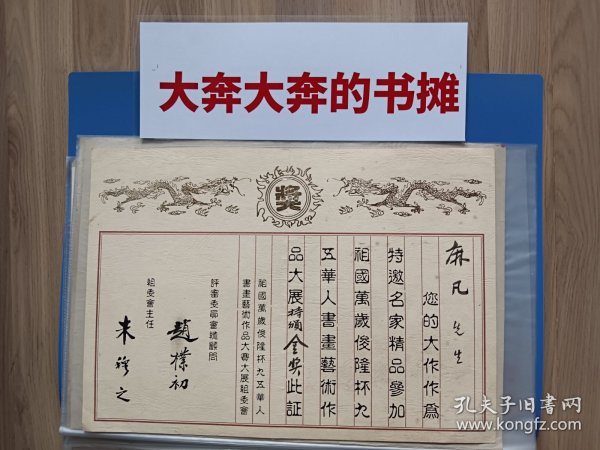 大奔大奔的书摊
獎
麻凡 先生
您的大作作爲
特邀名家精品參加
祖國萬歲俊隆杯九
五華人書畫藝術作
品大展特頒金奖此証
祖國萬歲俊隆杯九五華人
書畫藝術作品大賽大展組委會
評審委員會總顧問
趙樸初
組委會主任
朱穆之
孔夫子旧书网
www.kongfz.com